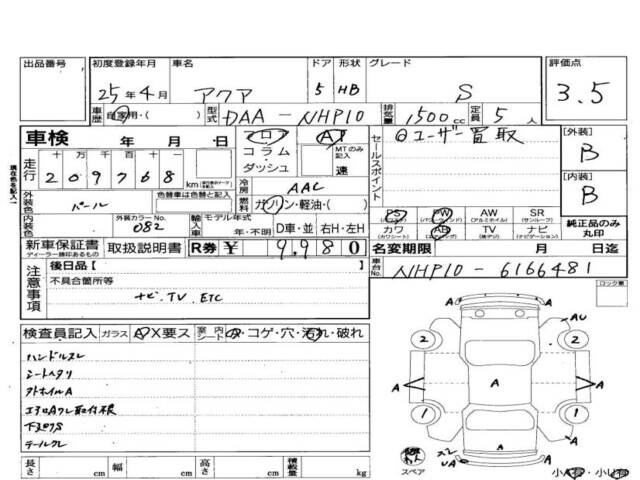 出品番号 初度登録年月 車名 ドア 形状 グレード 評価点
25年4月 アクア 5 HB S 3.5
車歴 自家用・( ) 型式 DAA-NHP10 排気量 1500cc 定員 5人
車検 年 月 日 フロア コラム ダッシュ AT MTのみ記入 速
セールスポイント ①ユーザー買取
[外装] B
[内装] B
現在色を記入
走行 十万 千百十一 209768 km
冷房 AAC
外装色 パール 色替車は色替と記入
燃料 ガソリン・軽油・( )
PS PW AW SR
(パワーウィンドウ) (アルミホイル) (サンルーフ)
カワ AB TV ナビ
(カワシート) (エアバッグ) (純正) (ナビゲーション)
純正品のみ丸印
内装色 外装カラーNo. 082 輸入車 モデル年式 年・不明 D車・並 右H・左H
新車保証書 取扱説明書 R券 ¥ 9,980
ディーラー捺印あるもの
名変期限 月 日迄
注意事項 後日品[ ]
不具合箇所等
ナビ.TV.ETC
車台No. NHP10-6166481
ロック車
検査員記入 ガラス A X要ス 室内 シート ・コゲ・穴・汚れ・破れ
ハンドルスレ
シートヘタリ
アルミホイルA
下スリキS
テールクレ
2 2 AU
A A A A A
1 1
A A
スペア UA A
小A有・小U有
長さ cm 幅 cm 高さ cm 積載量 kg